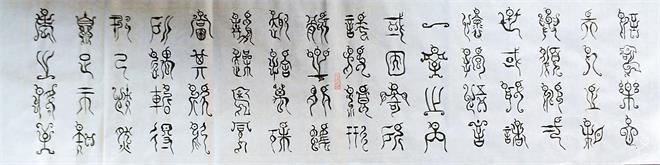 信可樂也
夫人之相
與俯仰一
世或取諸
懷抱悟言
一室之內
或因寄所
託放浪形
骸之外雖
趣舍萬殊
靜躁不同
當其欣於
所遇暫得
於己快然
自足不知
老之將至